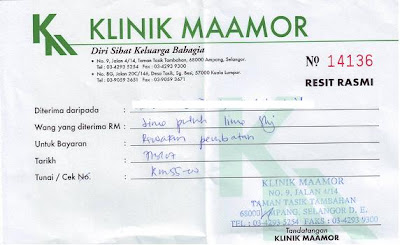 KM
KLINIK MAAMOR
Diri Sihat Keluarga Bahagia
• No. 9, Jalan 4/14, Taman Tasik Tambahan, 68000 Ampang, Selangor.
Tel : 03-4293 5254 Fax : 03-4293 9300
• No. 8G, Jalan 20C/146, Desa Tasik, Sg. Besi, 57000 Kuala Lumpur.
Tel : 03-9059 3631 Fax : 03-9059 3671
Nº 14136
RESIT RASMI
Diterima daripada :
Wang yang diterima RM : lima puluh lima
Untuk Bayaran : Rawatan perubatan
Tarikh :
Tunai / Cek No. : RM55-00
KLINIK MAAMOR
NO. 9, JALAN 4/14
TAMAN TASIK TAMBAHAN
68000 AMPANG, SELANGOR D. E.
TEL : 03-4293 5254 FAKS : 03-4293 9300
Tandatangan
KLINIK MAAMOR